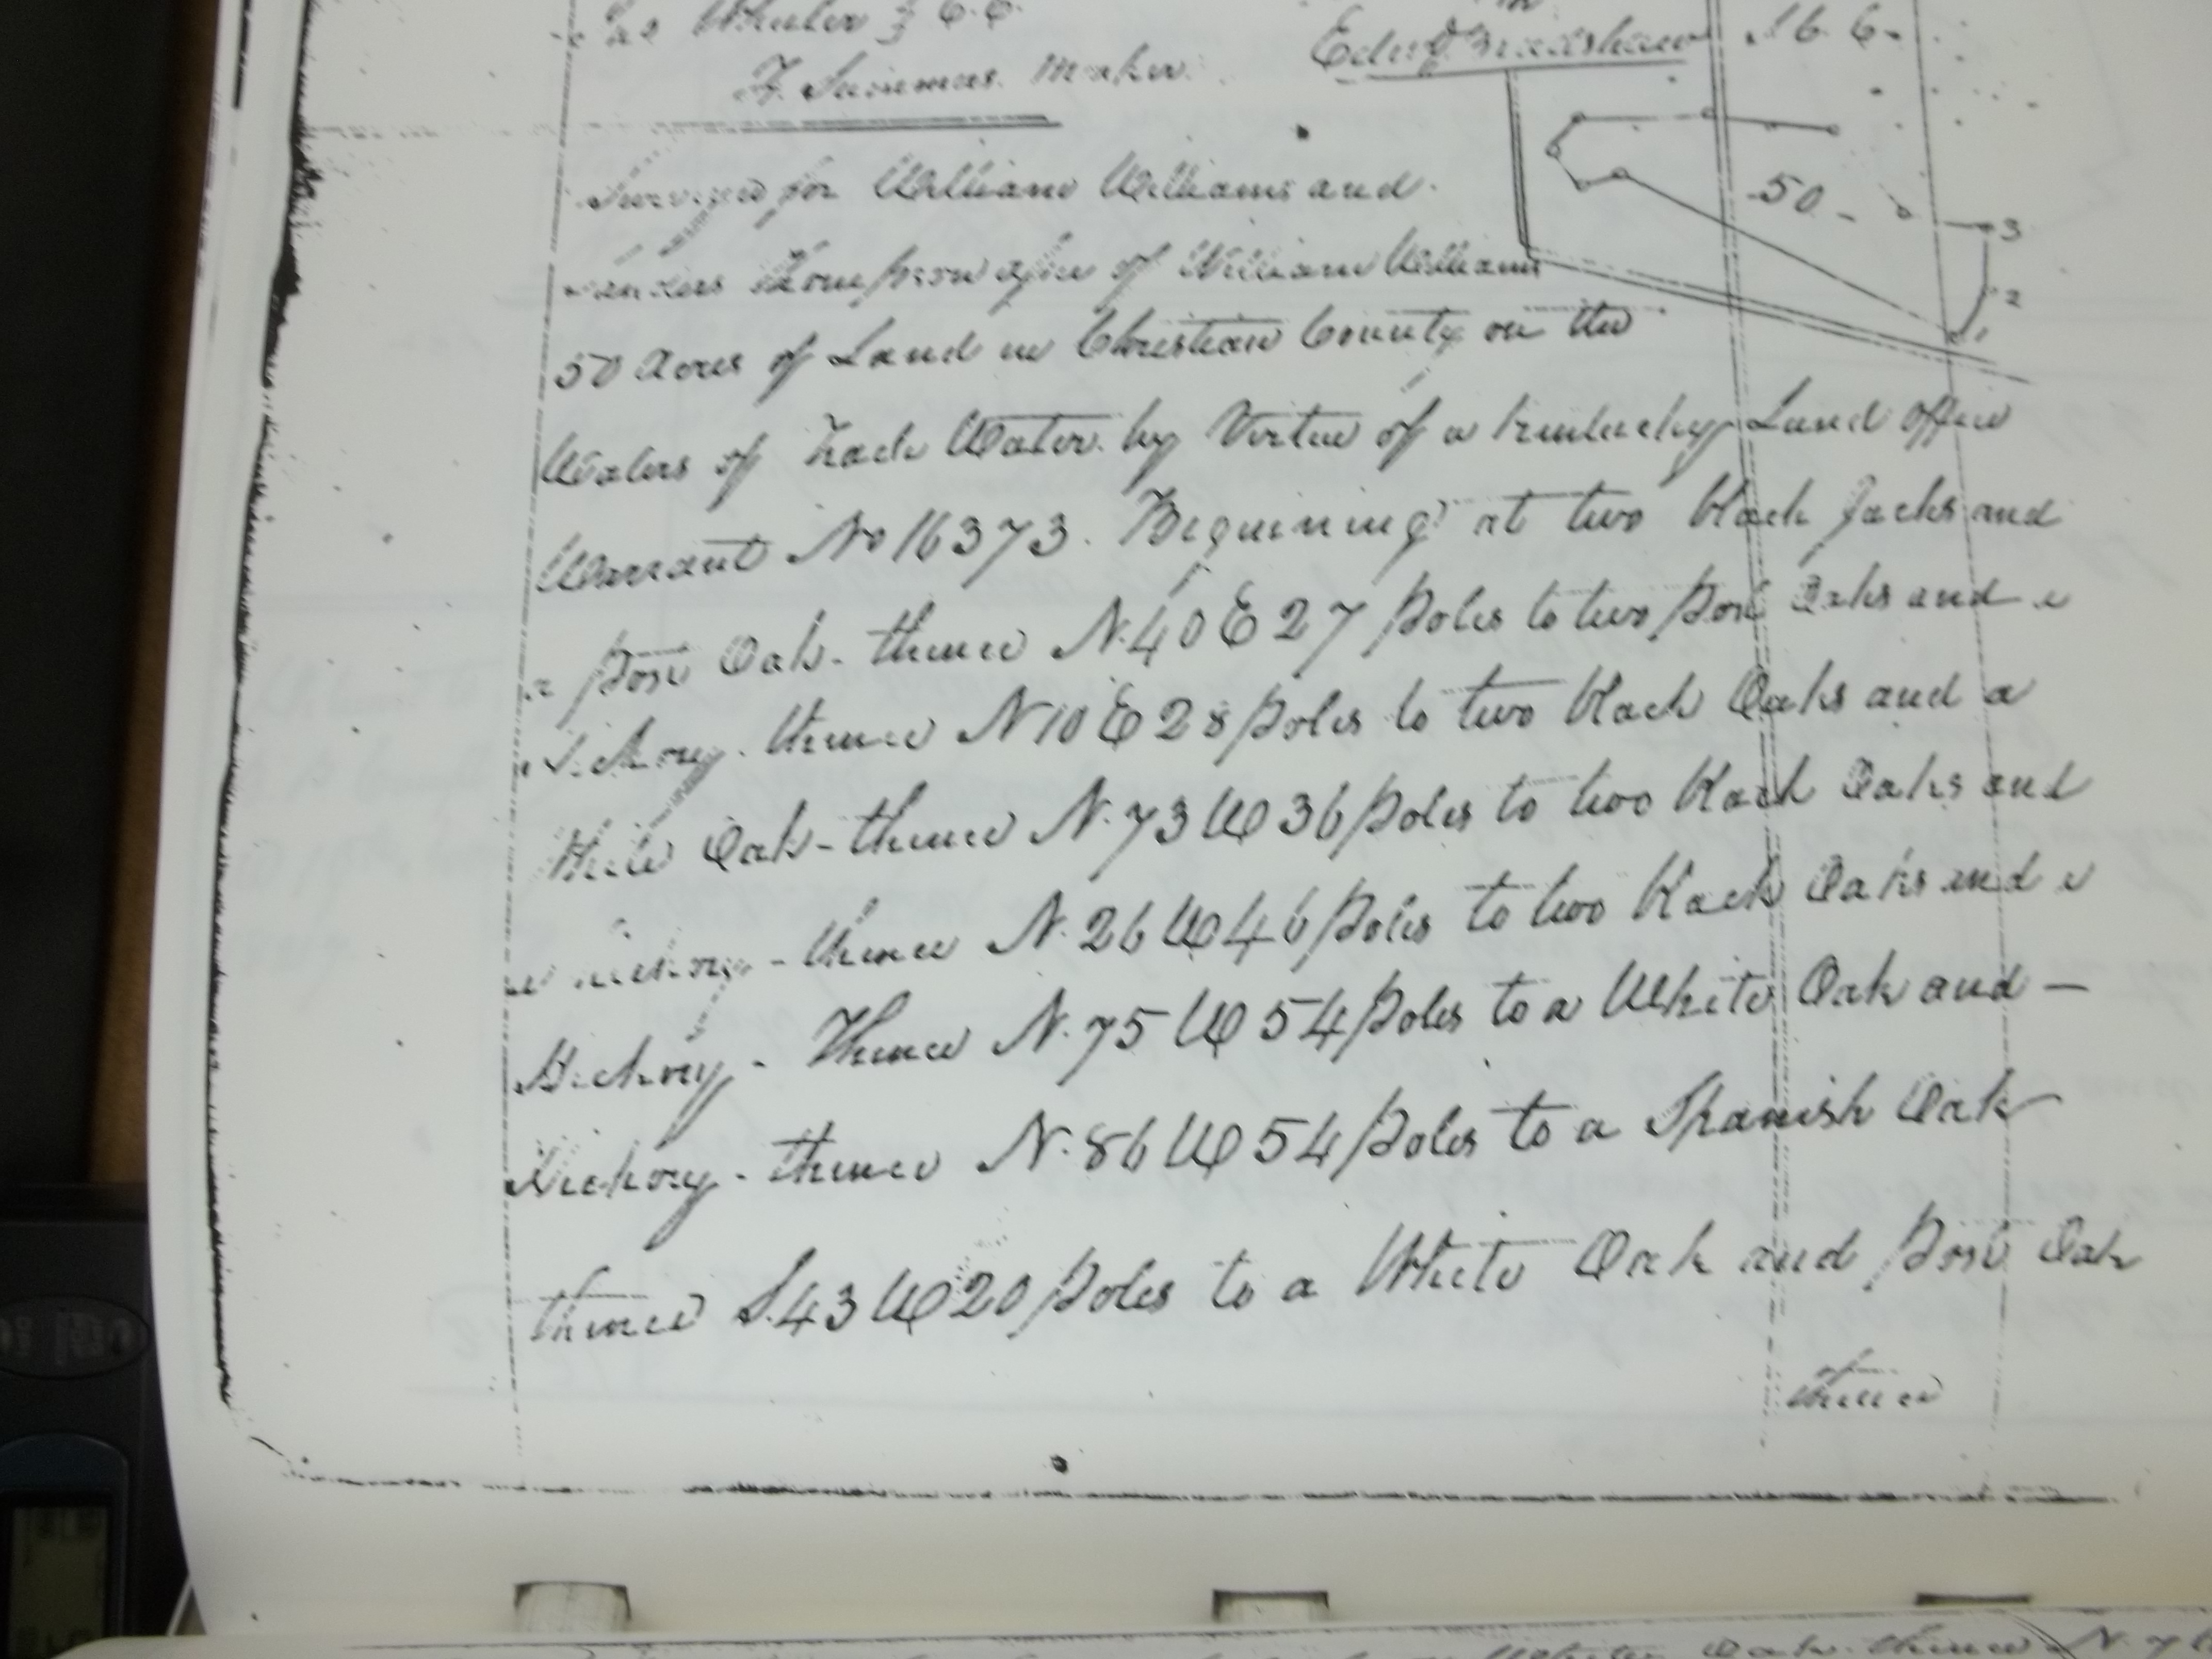 Wheeler } C. C.
F. Summers. Marker.
Edw. Bradshaw S.C.C.
Surveyed for William Williams and
Sanders Thompson assee of William Williams
50 Acres of Land in Christian County on the
Waters of Trade Water. by Virtue of a Kentucky Land office
Warrant No 16373. Beginning at two black Jacks and
a post Oak - thence N. 40 E 27 poles to two post Oaks and a
Hickory. thence N 10 E 28 poles to two black Oaks and a
White Oak - thence N. 73 W 36 poles to two black Oaks and
a Hickory - thence N. 26 W 46 poles to two black Oaks and a
Hickory - Thence N. 75 W 54 poles to a White Oak and -
Hickory - thence N. 86 W 54 poles to a Spanish Oak
thence S. 43 W 20 poles to a White Oak and post Oak
thence
50
3
2
1